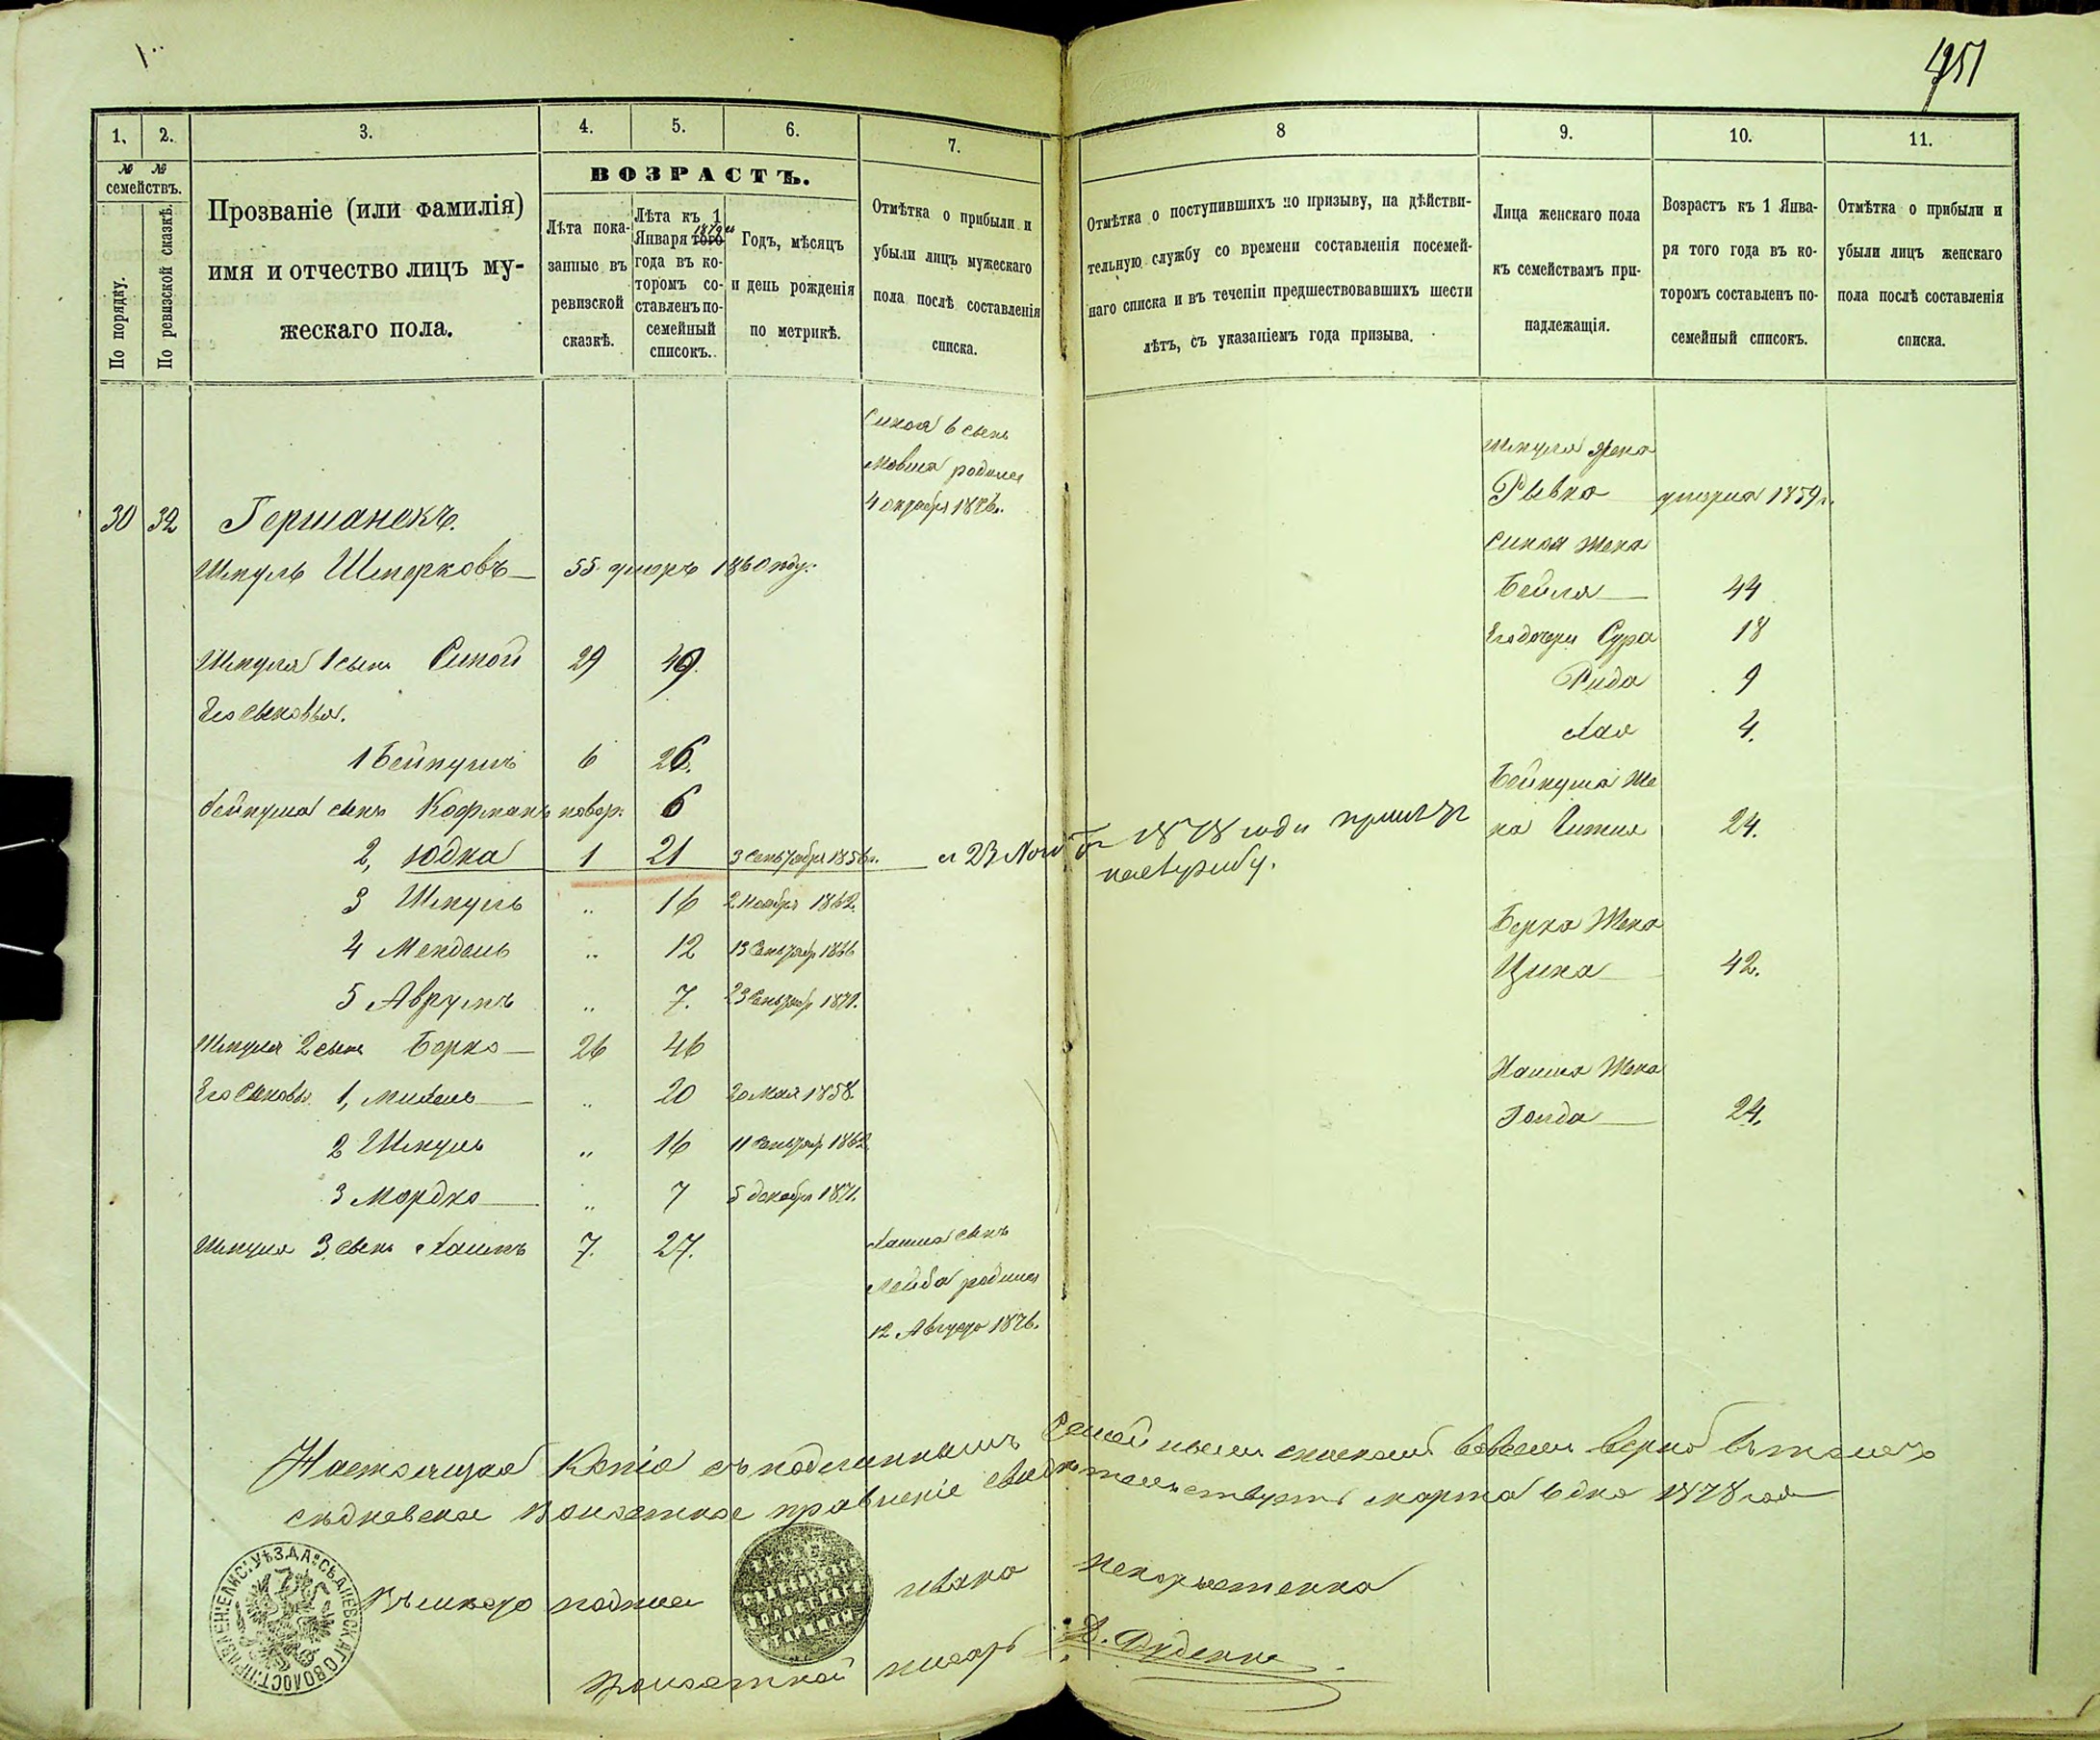 1951
1. 2. 3. 4. 5. 6. 7. 8 9. 10. 11.
№ №
семействъ.
По порядку.
По ревизской сказкѣ.
Прозваніе (или фамилія)
имя и отчество лицъ му-
жескаго пола.
ВОЗРАСТЪ.
Лѣта пока-
занные въ
ревизской
сказкѣ.
Лѣта къ 1
Января того
года въ ко-
торомъ со-
ставленъ по-
семейный
списокъ.
Годъ, мѣсяцъ
и день рожденія
по метрикѣ.
Отмѣтка о прибыли и
убыли лицъ мужескаго
пола послѣ составленія
списка.
Отмѣтка о поступившихъ по призыву, на дѣйстви-
тельную службу со времени составленія посемей-
наго списка и въ теченіи предшествовавшихъ шести
лѣтъ, съ указаніемъ года призыва.
Лица женскаго пола
къ семействамъ при-
надлежащія.
Возрастъ къ 1 Янва-
ря того года въ ко-
торомъ составленъ по-
семейный списокъ.
Отмѣтка о прибыли и
убыли лицъ женскаго
пола послѣ составленія
списка.
30 32 Гершанокъ.
Шмуль Шмерковъ 55 умеръ 1860 году.
Шмуля 1 сынъ Симой 29 49.
Его сыновья.
1 Бейнушъ 6 26.
Бейнуша сынъ Кофманъ новор. 6
2, Юдка 1 21 3 Сентября 1856 г.
3 Шмуль " 16 2 Ноября 1862.
4 Мендель " 12 13 Сентябр 1866
5 Аврумъ " 7. 23 Сентябр 1871.
Шмуля 2 сынъ Берко 26 46
Его Сыновья 1, Михель " 20 20 Мая 1858.
2 Шмуль " 16 11 Сентябр 1862.
3 Мордко " 7 5 декабря 1871.
Шмуля 3 сынъ Хаимъ 7. 27.
Симоя 6 сынъ
Мовша родился
4 октября 1876 г.
Хаима сынъ
Лейба родился
12 Августа 1876.
23 1878 года принятъ
на службу.
Шмуля жена
Рывка умерла 1859 г.
Симоя жена
Бейла 44
Его дочери Сура 18
Рида 9
Хая 4.
Бейнуша же
на Гитля 24.
Берка Жена
Цына 42.
Хаима Жена
Голда 24.
Настоящая Копія съ подлиннымъ Семейнымъ спискомъ вѣрна въ томъ
Сѣдневское Волостное правленіе свидѣтельствуетъ марта 6 дня 1878 года
Волостной писарь Д. Дуденко
ПРАВЛЕНІЕ СѢДНЕВСКАГО ВОЛОСТ.